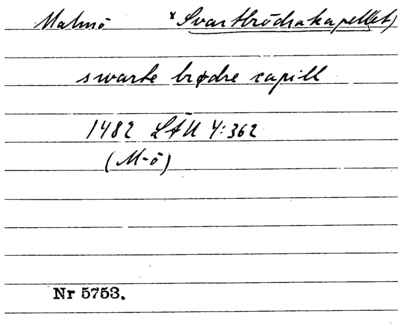 Malmö *Svartbrödrakapellet)
swarte brødre capill
1482 LÄU 4:362
(M-ö)
Nr 5753.